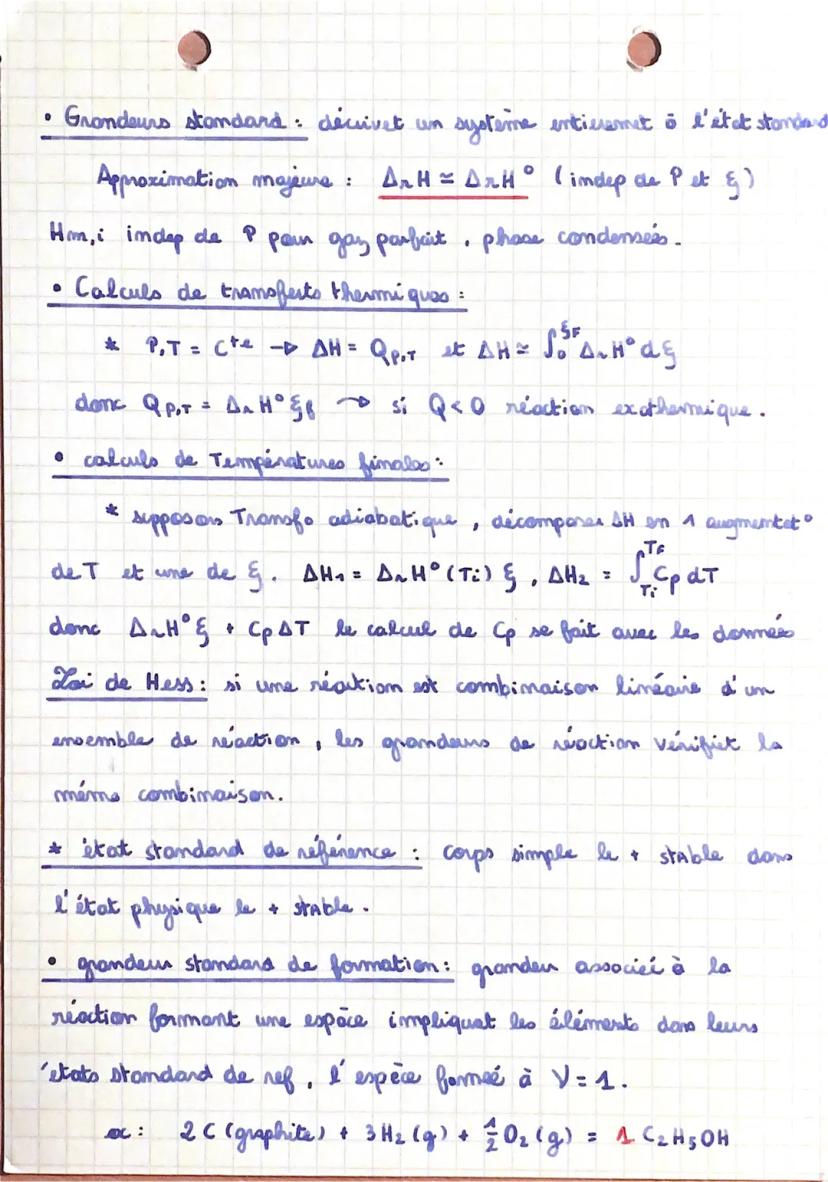 • Grandeurs standard : décrivet un système entieremet ō l'état standard
Approximation majeure : ΔrH ≃ ΔrH° (indep de P et ξ)
Hm,i indep de P pour gaz parfait, phase condensées.
• Calculs de transferts thermiques :
* P,T = Cte → ΔH = QP,T et ΔH ≃ ∫₀^ξF ΔrH° dξ
donc QP,T = ΔrH° ξf → si Q < 0 réaction exothermique.
• calculs de Températures finales :
* supposons Transfo adiabatique, décomposer ΔH en 1 augmentat°
de T et une de ξ. ΔH₁ = ΔrH°(Ti) ξ, ΔH₂ = ∫Ti^TF Cp dT
donc ΔrH°ξ + CpΔT le calcul de Cp se fait avec les données
Loi de Hess : si une réaction est combinaison linéaire d'un
ensemble de réaction, les grandeurs de réaction vérifiet la
même combinaison.
* état standard de référence : corps simple le + stable dans
l'état physique le + stable.
• grandeur standard de formation : grandeur associée à la
réaction formant une espèce impliquat les éléments dans leurs
états standard de ref, l'espèce formée à ν = 1.
ex : 2 C (graphite) + 3 H₂ (g) + ½ O₂ (g) = 1 C₂H₅OH